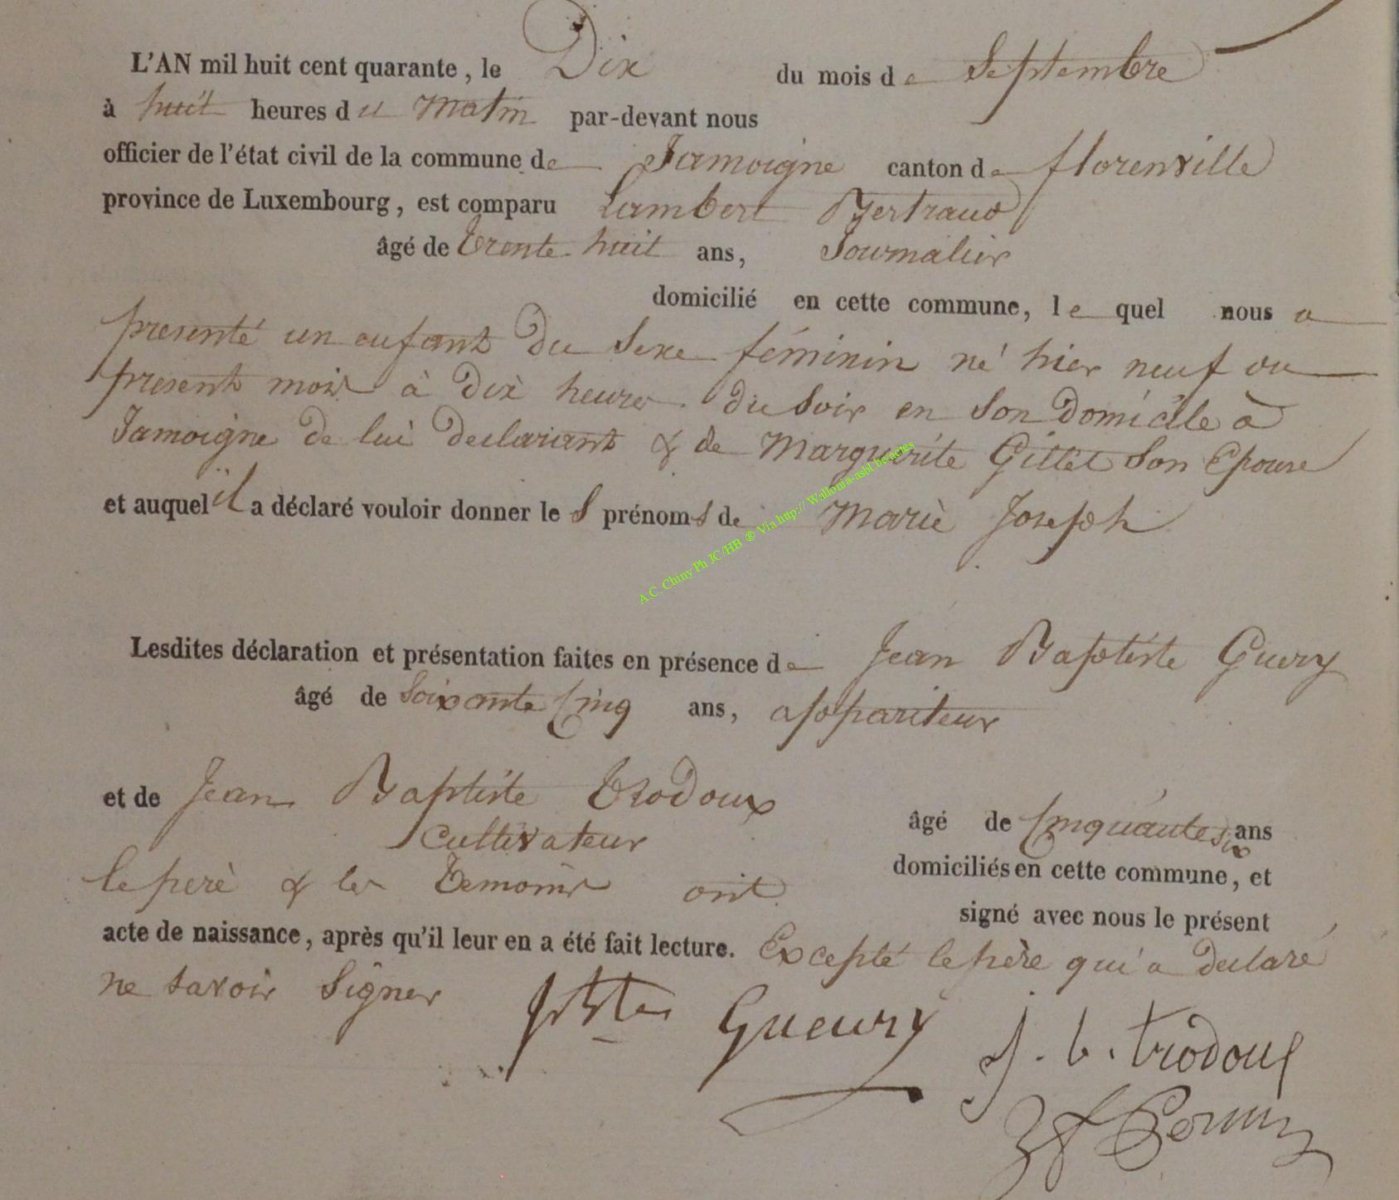 L'AN mil huit cent quarante, le Dix du mois de Septembre
à huit heures du Matin par-devant nous
officier de l'état civil de la commune de Jamoigne canton de florenville
province de Luxembourg, est comparu Lambert Bertrand
âgé de Trente huit ans, Journalier
domicilié en cette commune, le quel nous a
presenté un enfant du Sexe féminin né hier neuf du
present mois à dix heures du Soir en Son Domicile à
Jamoigne de lui declarant & de Marguerite Gillet Son Epouse
et auquel il a déclaré vouloir donner le s prénoms de Marie Joseph
A.C. Chiny Ph JC/HB ® Via http://Wallonia-asbl
Lesdites déclaration et présentation faites en présence de Jean Baptiste Guery
âgé de Soixante Cinq ans, appariteur
et de Jean Baptiste Trodoux
âgé de Cinquante six ans
Cultivateur
domiciliés en cette commune, et
le père & les Temoins ont
signé avec nous le présent
acte de naissance, après qu'il leur en a été fait lecture. Excepté le père qui a declaré
ne savoir Signer
Gueury
j. b. trodoux